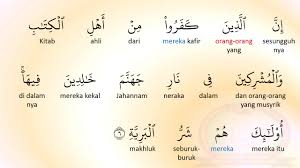 إِنَّ ٱلَّذِينَ كَفَرُوا۟ مِنْ أَهْلِ ٱلْكِتَـٰبِ
Kitab ahli dari mereka kafir orang-orang sesungguh
yang nya
وَٱلْمُشْرِكِينَ فِى نَارِ جَهَنَّمَ خَـٰلِدِينَ فِيهَآ ۚ
di dalam mereka kekal Jahannam neraka dalam dan orang-orang
nya yang musyrik
أُو۟لَـٰٓئِكَ هُمْ شَرُّ ٱلْبَرِيَّةِ ٦
makhluk seburuk- mereka mereka itu
buruk